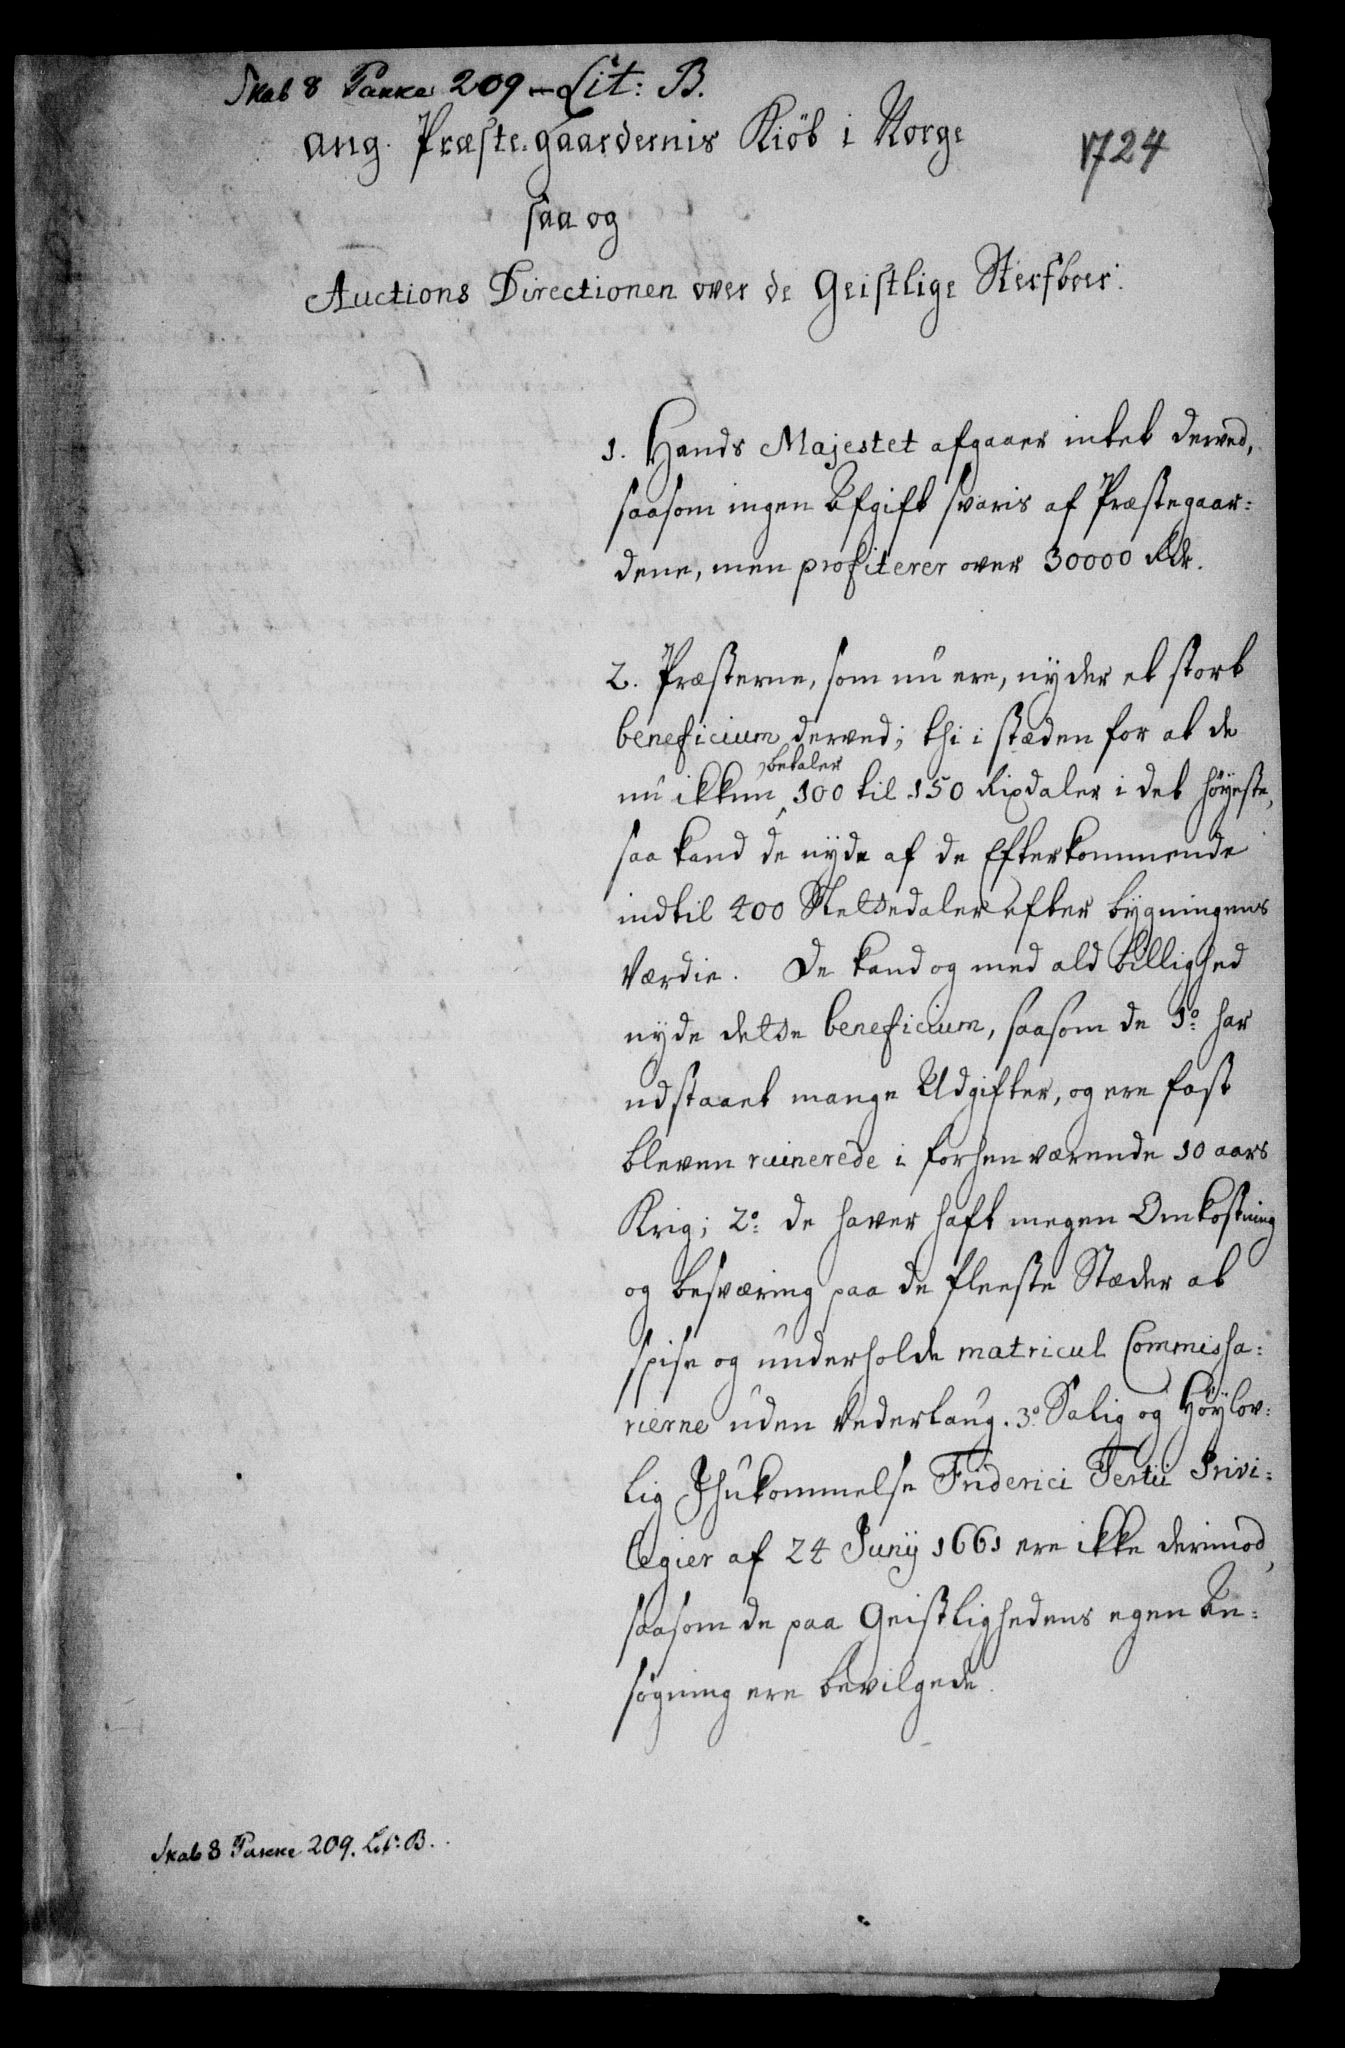 Skab 8 Pakke 209 – Lit: B.
ang. Præste-gaardernis Kiöb i Norge
1724
saa og
Auctions Directionen over de Geistlige Sterfboer.
1. Hands Majestet afgaaer intet derved,
saasom ingen Afgift svaris af Præstegaar=
dene, men profiterer over 30000 Rdr.
2. Præsterne, som nu ere, nyder et stort
beneficium derved; thi i stæden for at de
betaler
nu ikkun 100 til 150 Rixdaler i det høyeste,
saa kand de nyde af de Efterkommende
indtil 400 Slettedaler efter bygningens
Værdie. De kand og med ald billighed
nyde dette beneficium, saasom de 1º har
udstaaet mange Udgifter, og ere fast
bleven ruinerede i forhenværende 10 aars
Krig; 2º de haver haft megen Omkostning
og besværing paa de fleeste Stæder at
spise og underholde matricul Commissa=
rierne uden Vederlaug. 3º Salig og Høylov=
lig Ihukommelse Friderici Tertii Privi=
legier af 24 Junij 1661 ere ikke derimod,
saasom de paa Geistlighedens egen An=
søgning ere bevilgede.
Skab 8 Pakke 209. Lit: B.